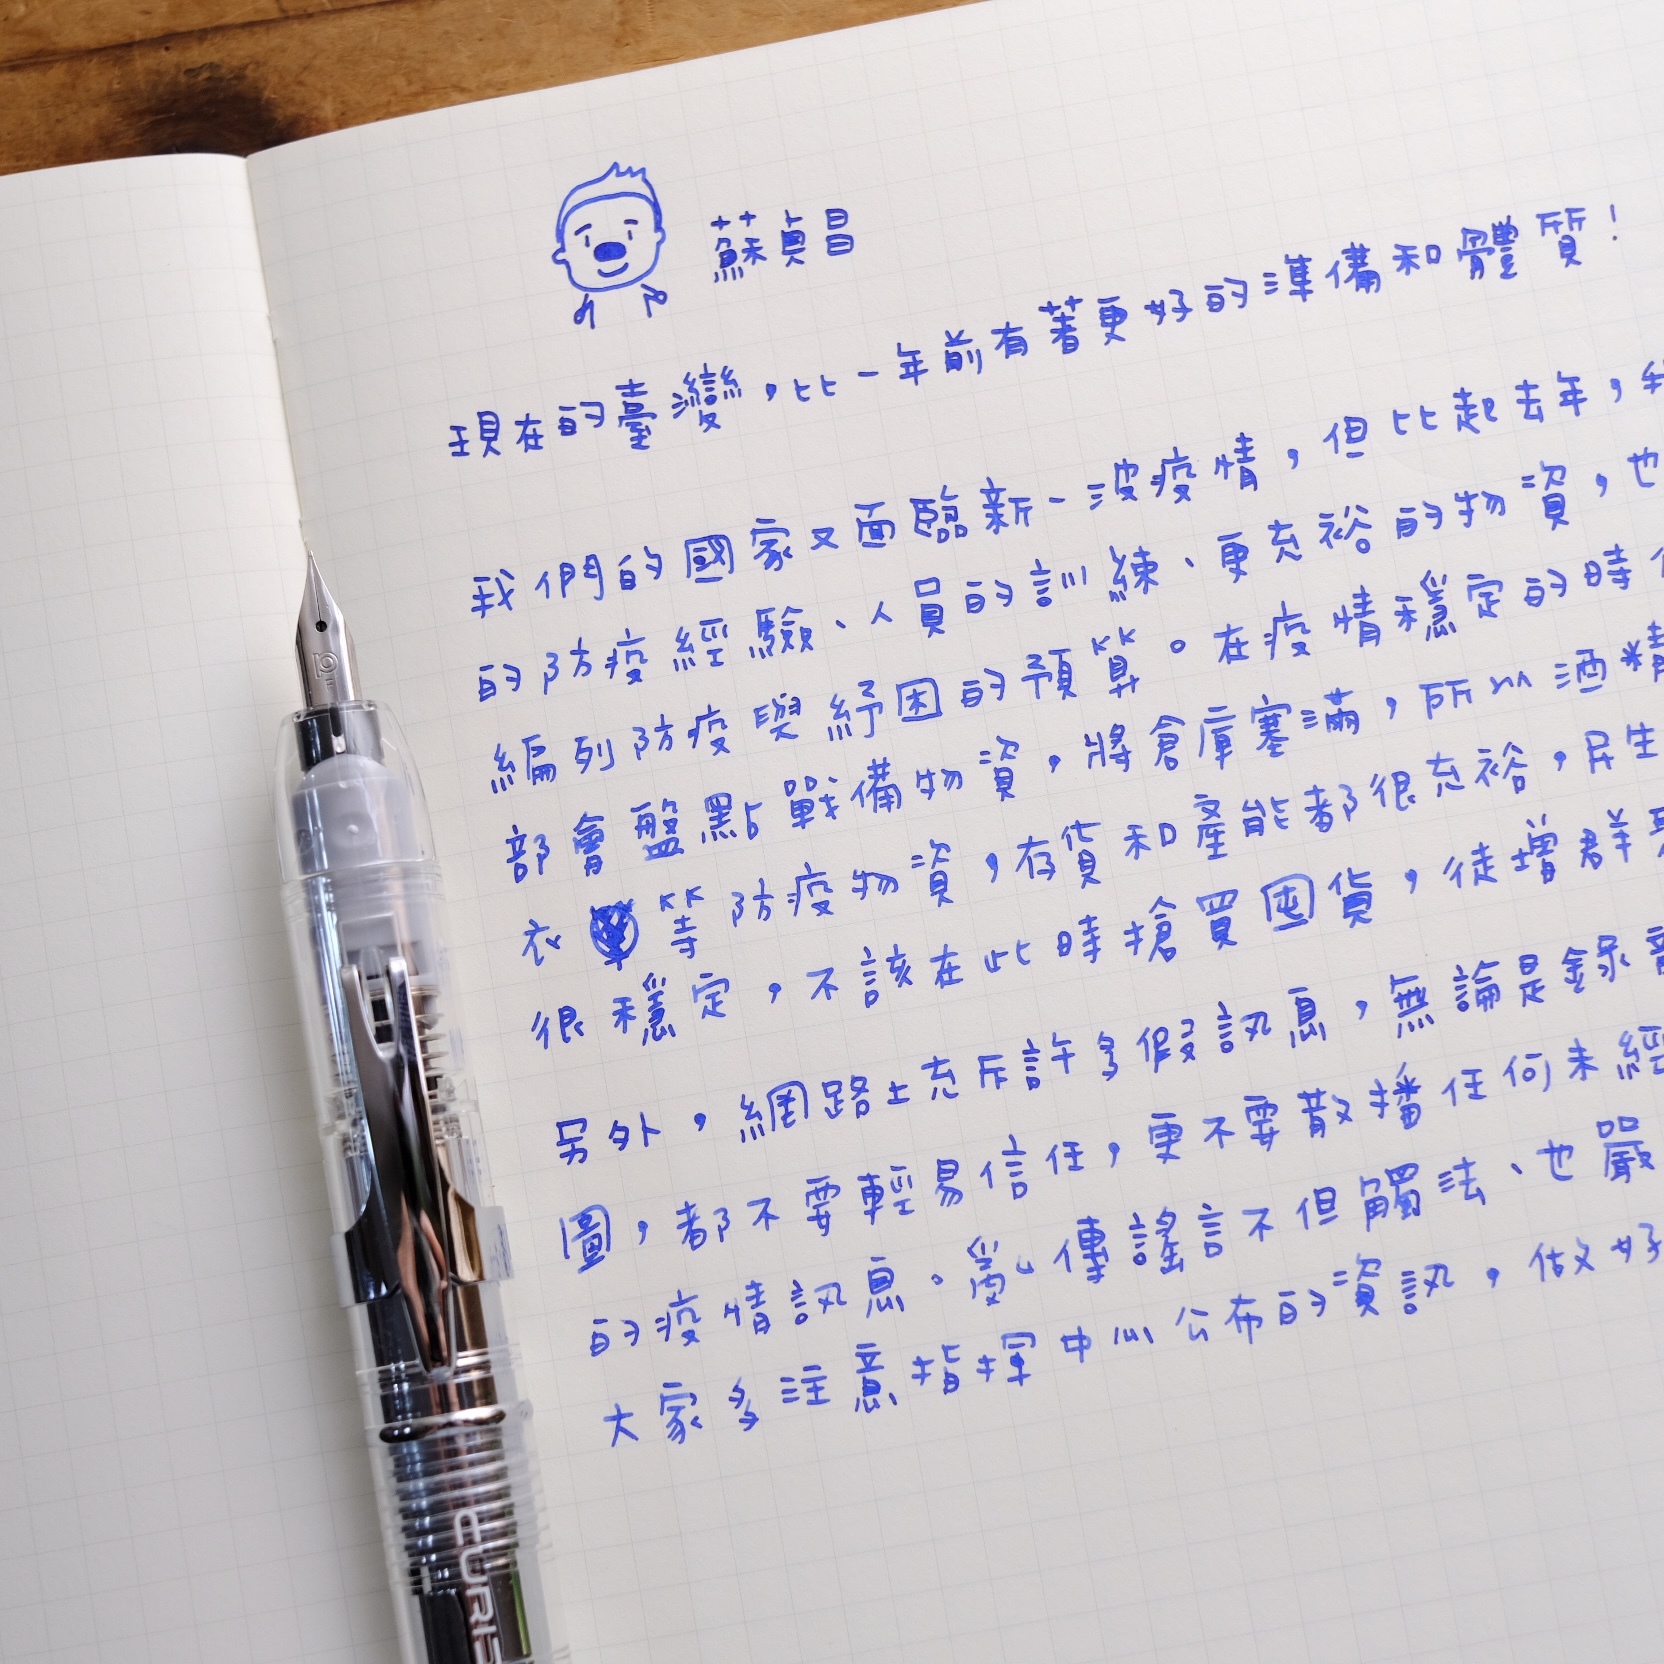 蘇貞昌
現在的臺灣，比一年前有著更好的準備和體質！
我們的國家又面臨新一波疫情，但比起去年，我
的防疫經驗、人員的訓練、更充裕的物資，也
編列防疫與紓困的預算。在疫情穩定的時
部會盤點戰備物資，將倉庫塞滿，所以酒精
衣 等防疫物資，存貨和產能都很充裕，民生
很穩定，不該在此時搶買囤貨，徒增群聚
另外，網路上充斥許多假訊息，無論是錄
圖，都不要輕易信任，更不要散播任何未經
的疫情訊息、惡心傳謠言不但觸法、也嚴
大家多注意指揮中心公布的資訊，做好
EURI